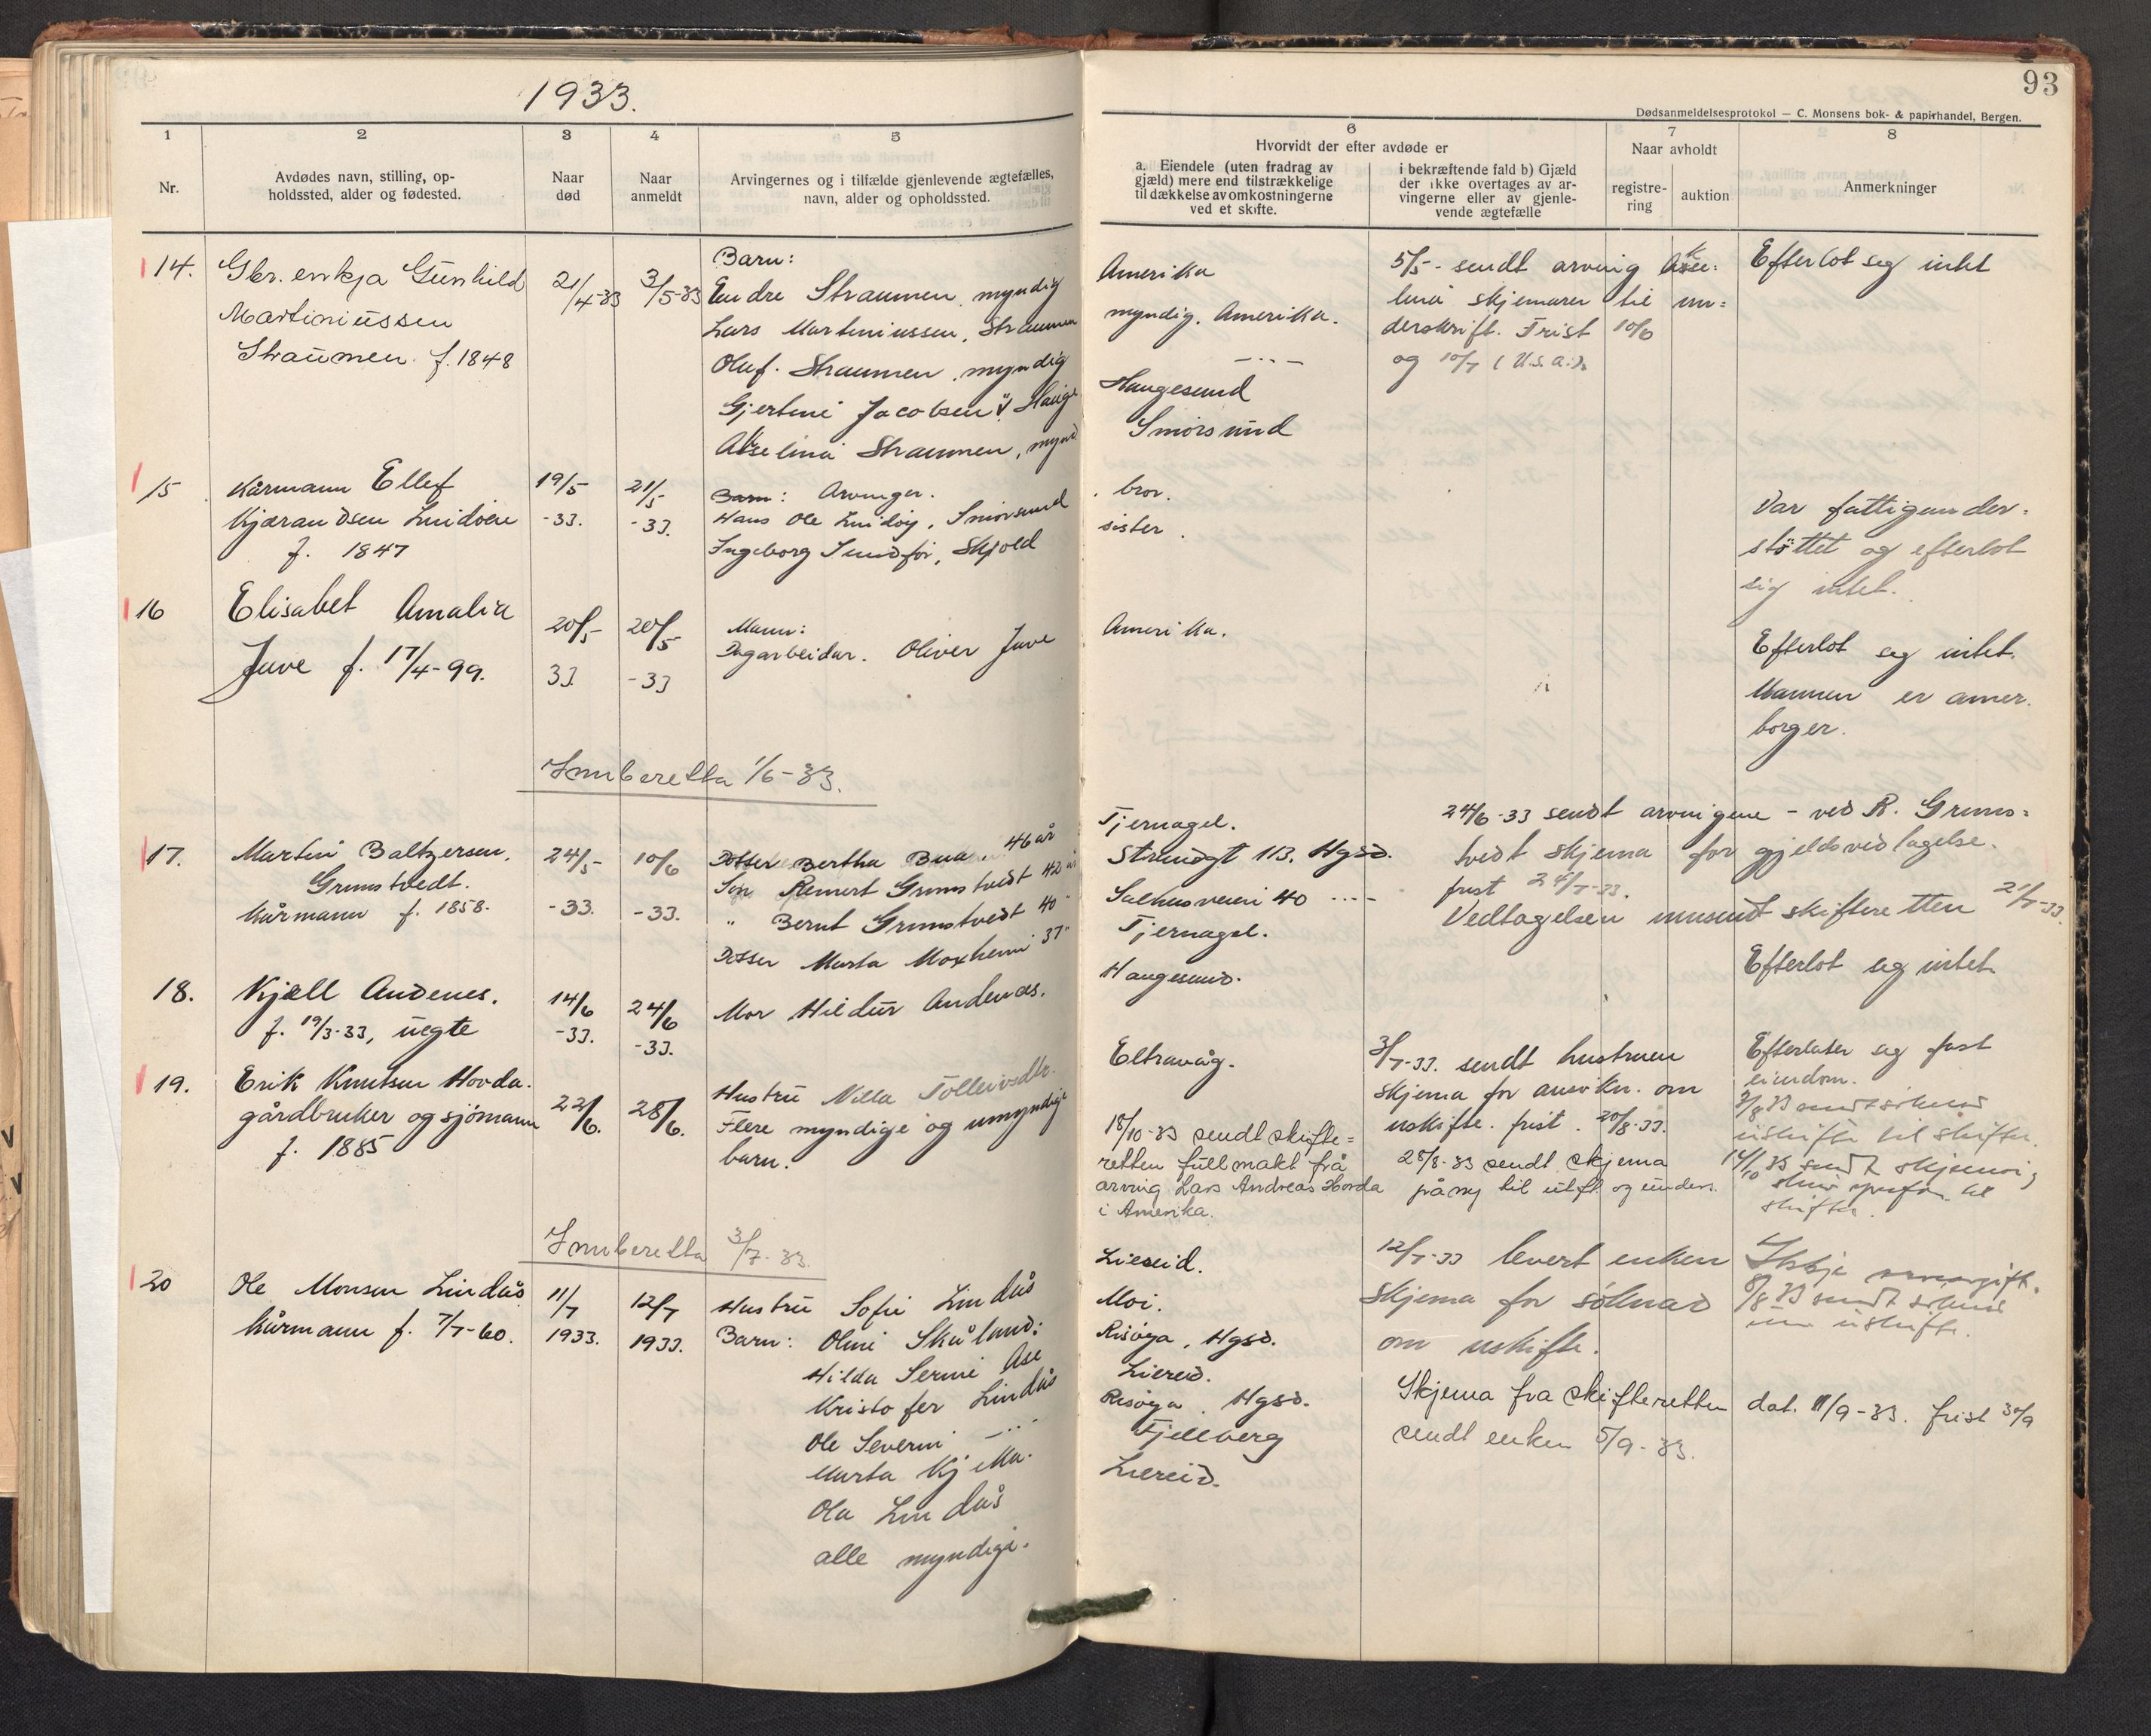 1933.
93
Dødsanmeldelsesprotokol — C. Monsens bok- & papirhandel, Bergen.
1
2
3
4
5
6
7
8
Nr.
Avdødes navn, stilling, op-
holdssted, alder og fødested.
Naar
død
Naar
anmeldt
Arvingernes og i tilfælde gjenlevende ægtefælles,
navn, alder og opholdssted.
Hvorvidt der efter avdøde er
a. Eiendele (uten fradrag av
gjæld) mere end tilstrækkelige
til dækkelse av omkostningerne
ved et skifte.
i bekræftende fald b) Gjæld
der ikke overtages av ar-
vingerne eller av gjenle-
vende ægtefælle
Naar avholdt
registre-
ring
auktion
Anmerkninger
14.
Gbr. enkja Gunhild
Martiniussen
Straumen f. 1848
21/4-33
3/5-33
Barn:
Endre Straumen, myndig
Lars Martiniussen, Straumen
Oluf Straumen, myndig
Gjertine Jacobsen
Akseline Straumen, mynd
Amerika
myndig. Amerika.
— .. —
Haugesund
Smörsund
5/5 - sendt arving Akse=
line skjemaer til un=
derskrift. Frist 10/6
og 10/7 (U.S.A.).
Efterlot seg intet
15
Kårmann Ellef
Kjærandsen Lindøen
f. 1847
19/5
-33.
21/5
-33.
Barn: Arvinger.
Hans Ole Lindøy, Smörsund
Ingeborg Sundfør, Skjold
bror.
sister.
Var fattigunder=
støttet og efterlot
sig intet.
16
Elisabet Amalia
Juve f. 17/4-99.
20/5
33
20/5
-33
Mann:
Dagarbeidar. Oliver Juve
Amerika.
Efterlot seg intet.
Mannen er amer.
borger.
Innberetta 1/6-33.
17.
Martin Baltzersen
Grimstvedt.
Kårmann f. 1858.
24/5
-33.
10/6
-33.
Dotter Bertha Bua, 46 år
Søn Reinert Grimstvedt 42 år
" Bernt Grimstvedt 40 "
Dotter Marta Moxheim 37 "
Tjernagel.
Strandgt 113. Hgsd.
Salhusveien 40 ----
Tjernagel.
24/6-33 sendt arvingene - ved R. Grims=
tvedt skjema for gjeldsvedtagelse.
frist 24/7-33.
Vedtagelsen innsendt skifteretten 21/7-33.
18.
Kjell Andenes.
f. 19/3-33, uegte
14/6
-33.
24/6
-33.
Mor Hildur Andenæs.
Haugesund.
Efterlot seg intet.
19.
Erik Knutsen Hovda.
gårdbruker og sjömann
f. 1885
22/6.
28/6.
Hustru Nilla Tollevsdtr.
Flere myndige og umyndige
barn.
Eltravåg.
18/10-33 sendt skifte=
retten fullmakt frå
arving Lars Andreas Hovda
i Amerika.
3/7-33. sendt hustruen
skjema for ansökn. om
uskifte. frist. 20/8-33.
28/8-33 sendt skjema
på ny til utf. og unders.
Efterlater seg fast
eiendom.
Innberetta 3/7-33.
20
Ole Monsen Lindås
Kårmann f. 7/7-60.
11/7
1933.
12/7
1933.
Hustru Sofie Lindås
Barn: Oline Skåland:
Hilda Serine Åse
Kristofer Lindås
Ole Severin — .. —
Marta Kjetla.
Ola Lindås
alle myndige.
Liereid.
Moi.
Risöya, Hgsd.
Liereid.
Risöya, Hgsd.
Fjellberg
Liereid.
12/7-33 levert enken
skjema for söknad
om uskifte.
Skjema fra skifteretten dat. 1/9-33. frist 30/9
sendt enken 5/9-33.